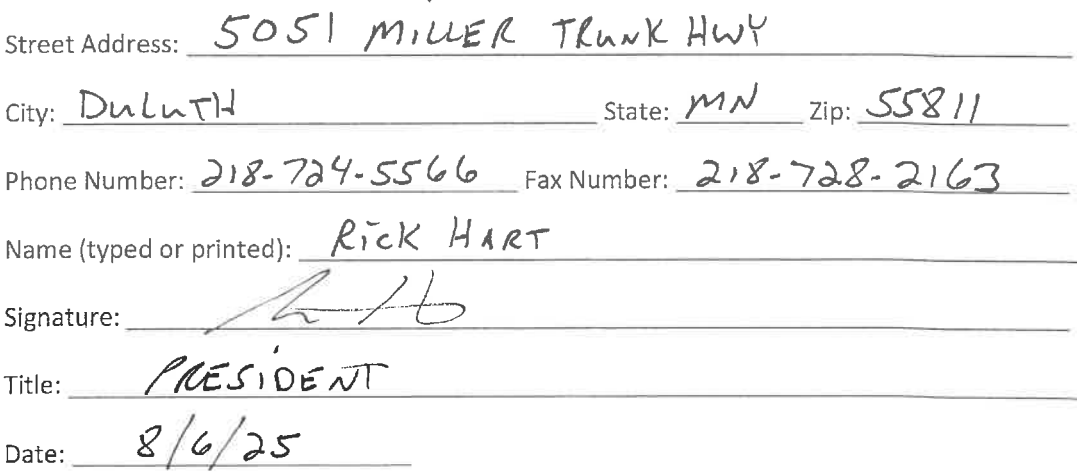 Street Address: 5051 MILLER TRUNK HWY
City: DuLuTH State: MN Zip: 55811
Phone Number: 218-724-5566 Fax Number: 218-728-2163
Name (typed or printed): RICK HART
Signature:
Title: PRESIDENT
Date: 8/6/25